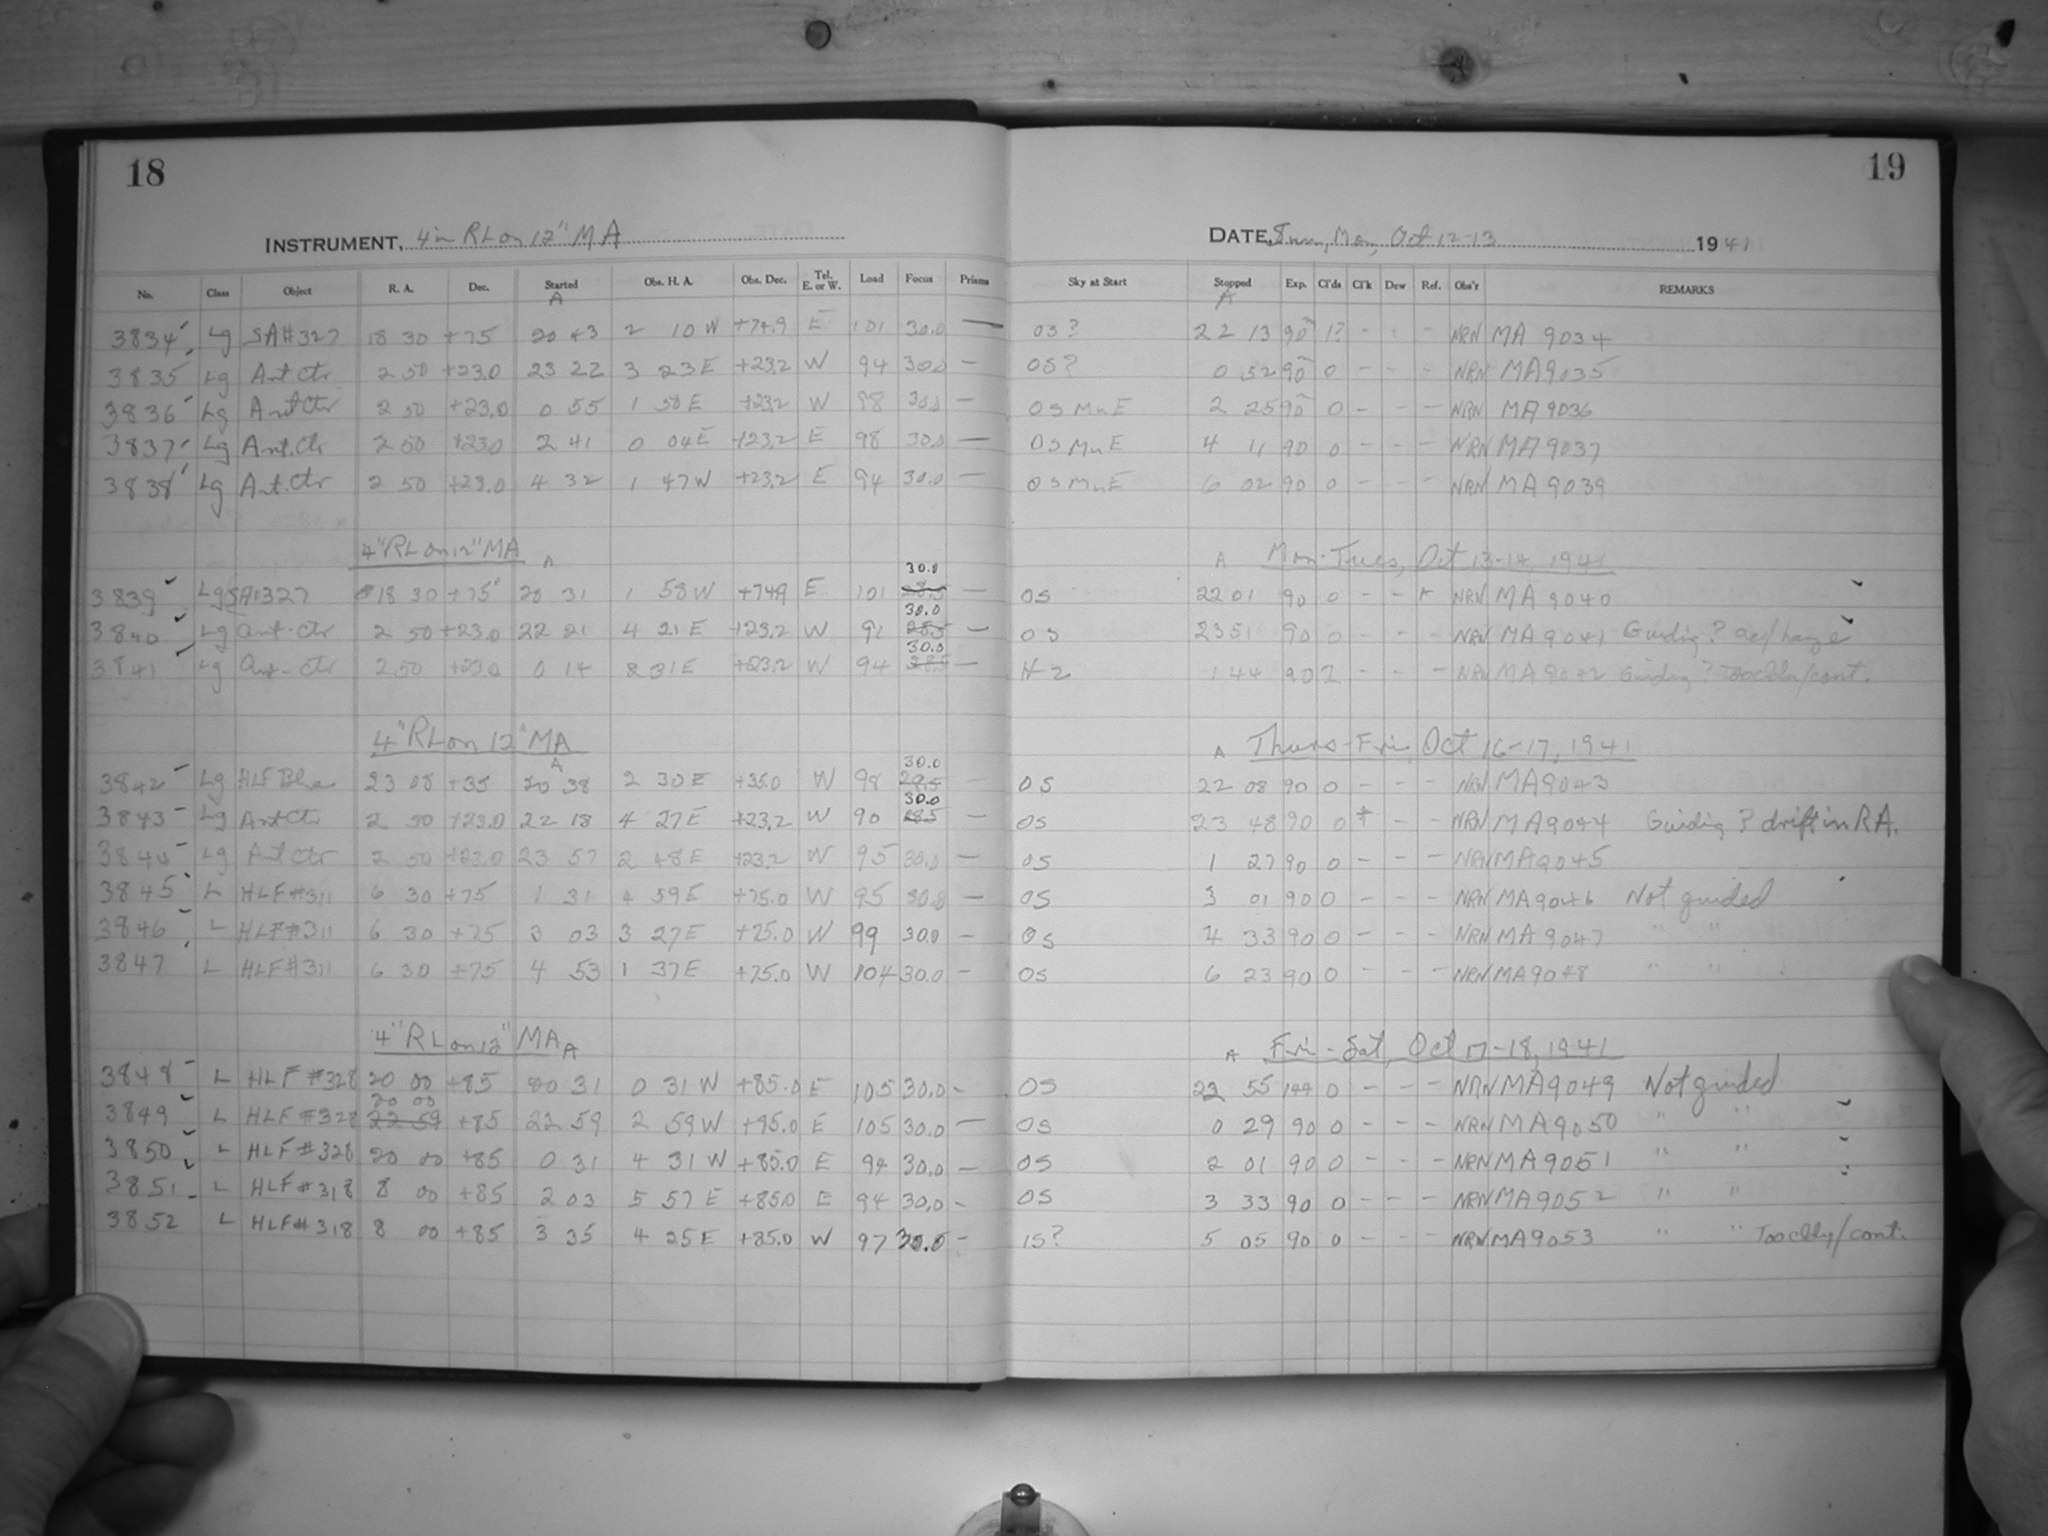 18
19
INSTRUMENT, 4 in RL on 12" MA
DATE, Sun, Mon, Oct 12-13 1941
No. Class Object R. A. Dec. Started Obs. H. A. Obs. Dec. Tel. E. or W. Load Focus Prisms Sky at Start Stopped Exp. Cl'ds Cl'k Dew Ref. Obs'r REMARKS
A A
3834 Lg SA#327 18 30 +75 20 43 2 10 W +74.9 E 101 30.0 — OS? 22 13 90 1? - - - NRN MA 9034
3835 Lg Ant Ctr 2 50 +23.0 23 22 3 23 E +23.2 W 94 30.0 — OS? 0 52 90 0 - - - NRN MA9035
3836 Lg Ant Ctr 2 50 +23.0 0 55 1 50 E +23.2 W 98 30.0 — OS Mn E 2 25 90 0 - - - NRN MA 9036
3837 Lg Ant. Ctr 2 50 +23.0 2 41 0 04 E +23.2 E 98 30.0 — OS Mn E 4 11 90 0 - - - NRN MA 9037
3838 Lg Ant. Ctr 2 50 +23.0 4 32 1 47 W +23.2 E 94 30.0 — OS Mn E 6 02 90 0 - - - NRN MA 9039
4" RL on 12" MA A A Mon-Tues, Oct 13-14, 1941
30.0
3839 Lg SA#327 18 30 +75 20 31 1 58 W +74.9 E 101 28.5 — OS 22 01 90 0 - - NRN MA 9040
30.0
3840 Lg Ant-Ctr 2 50 +23.0 22 21 4 21 E +23.2 W 91 28.5 — OS 23 51 90 0 - - - NRN MA 9041 Guiding? ac/haze
30.0
3841 Lg Ant-Ctr 2 50 +23.0 0 14 31 E +23.2 W 94 28.5 — HZ 1 44 90 2 - - - NRN MA 9042 Guiding? Too cldy/cont.
4" RL on 12" MA A Thurs-Fri, Oct 16-17, 1941
A 30.0
3842 Lg HLF Blue 23 08 +35 20 38 2 30 E +35.0 W 98 28.5 — OS 22 08 90 0 - - - NRN MA9043
30.0
3843 Lg Ant Ctr 2 50 +23.0 22 18 4 27 E +23.2 W 90 28.5 — OS 23 48 90 0 * - - NRN MA9044 Guiding? drift in RA.
Lg Ant Ctr 2 50 +23.0 23 57 2 48 E +23.2 W 95 30.0 — OS 1 27 90 0 - - - NRN MA9045
3845 L HLF#311 6 30 +75 1 31 4 59 E +75.0 W 95 30.0 — OS 3 01 90 0 - - - NRN MA9046 Not guided
3846 L HLF#311 6 30 +75 3 03 3 27 E +75.0 W 99 30.0 — OS 4 33 90 0 - - - NRN MA 9047 " "
3847 L HLF#311 6 30 +75 4 53 1 37 E +75.0 W 104 30.0 - OS 6 23 90 0 - - - NRN MA9048 " "
4" RL on 12" MA A A Fri-Sat, Oct 17-18, 1941
3848 L HLF #328 20 00 +85 20 31 0 31 W +85.0 E 105 30.0 - OS 22 55 144 0 - - - NRN MA9049 Not guided
20 00
3849 L HLF #328 22 59 +85 22 59 2 59 W +85.0 E 105 30.0 — OS 0 29 90 0 - - - NRN MA9050 " "
3850 L HLF #328 20 00 +85 0 31 4 31 W +85.0 E 94 30.0 — OS 2 01 90 0 - - - NRN MA9051 " "
3851 L HLF #318 8 00 +85 2 03 5 57 E +85.0 E 94 30.0 - OS 3 33 90 0 - - - NRN MA9052 " "
3852 L HLF#318 8 00 +85 3 35 4 25 E +85.0 W 97 30.0 - IS? 5 05 90 0 - - - NRN MA9053 " " Too cldy/cont.